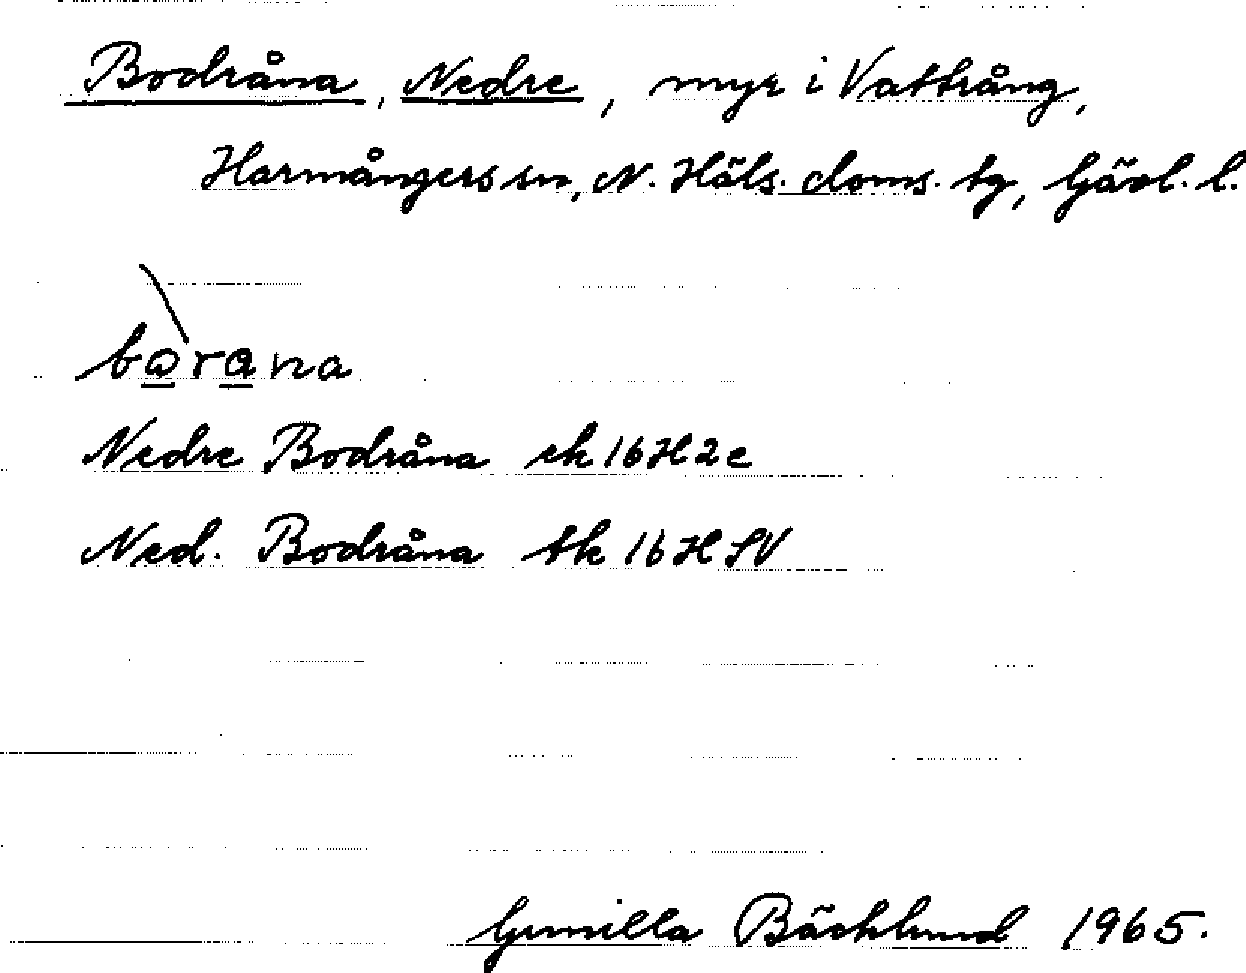 Bodråna, Nedre, myr i Vattrång,
Harmångers sn, N. Häls. doms. tg, Gävl. l.
bòrana
Nedre Bodråna ek 16H2e
Ned. Bodråna tk 16H SV
Gunilla Bäcklund 1965.